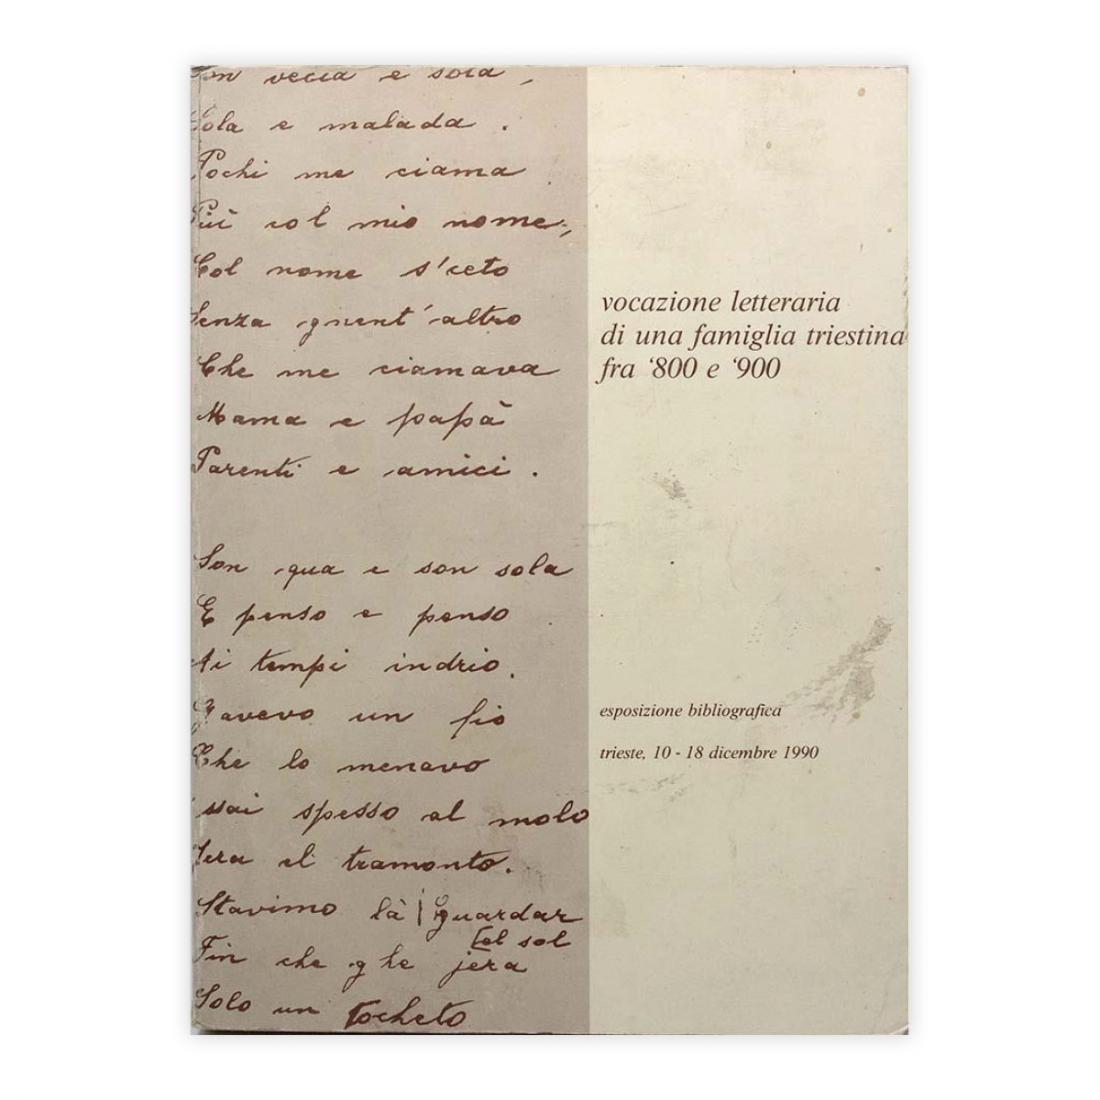 Son vecia e sola,
Sola e malada.
Pochi me ciama
Più col mio nome,
Col nome s'ceto
Senza gnent'altro
Che me ciamava
Mama e papà
Parenti e amici.
Son qua e son sola
E penso e penso
Ai tempi indrio.
Gavevo un fio
Che lo menavo
'ssai spesso al molo
Jera el tramonto.
Stavimo là guardar
[el sol
Fin che ghe jera
Solo un tocheto
vocazione letteraria
di una famiglia triestina
fra '800 e '900
esposizione bibliografica
trieste, 10 - 18 dicembre 1990